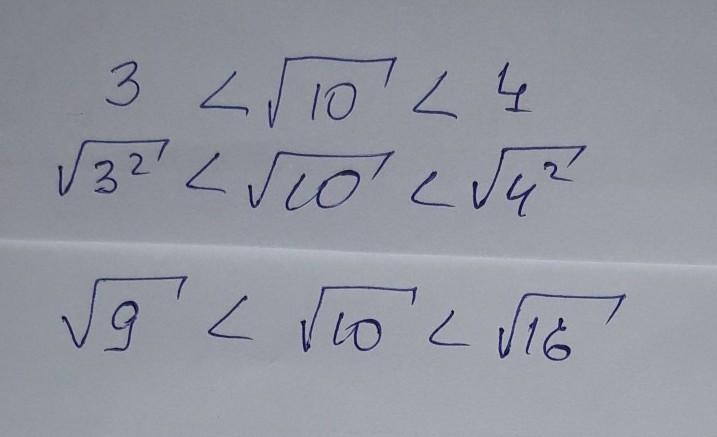 3 < √10 < 4
√3² < √10 < √4²
√9 < √10 < √16